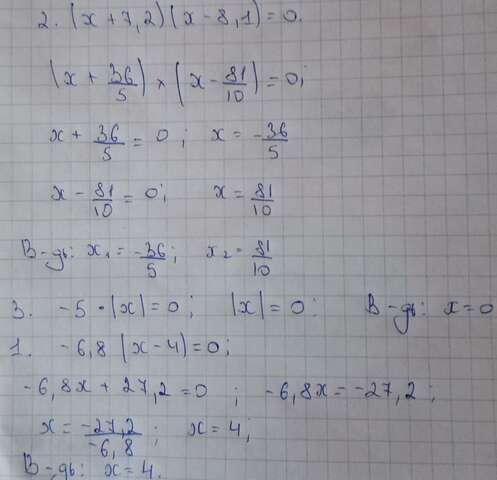 2. (x + 7,2) (x - 8,1) = 0.
(x + 36/5) × (x - 81/10) = 0;
x + 36/5 = 0; x = -36/5
x - 81/10 = 0; x = 81/10
В-дь: x₁ = -36/5; x₂ = 81/10
3. -5 · |x| = 0; |x| = 0; В-дь: x = 0
1. -6,8 (x - 4) = 0;
-6,8x + 27,2 = 0; -6,8x = -27,2;
x = -27,2/-6,8; x = 4;
В-дь: x = 4.